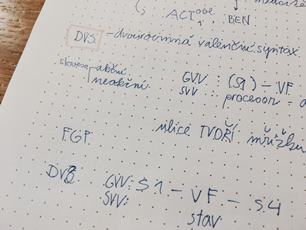 ACT obe BEN
DVS - dvourovinná valenční syntax
slovesa akční
neakční
GVV : (S1) - VF
SVV : procesor -
FGP
ulice TVOŘÍ mřížku
DVS
GVV: S1 - VF - S4
SVV:
stav